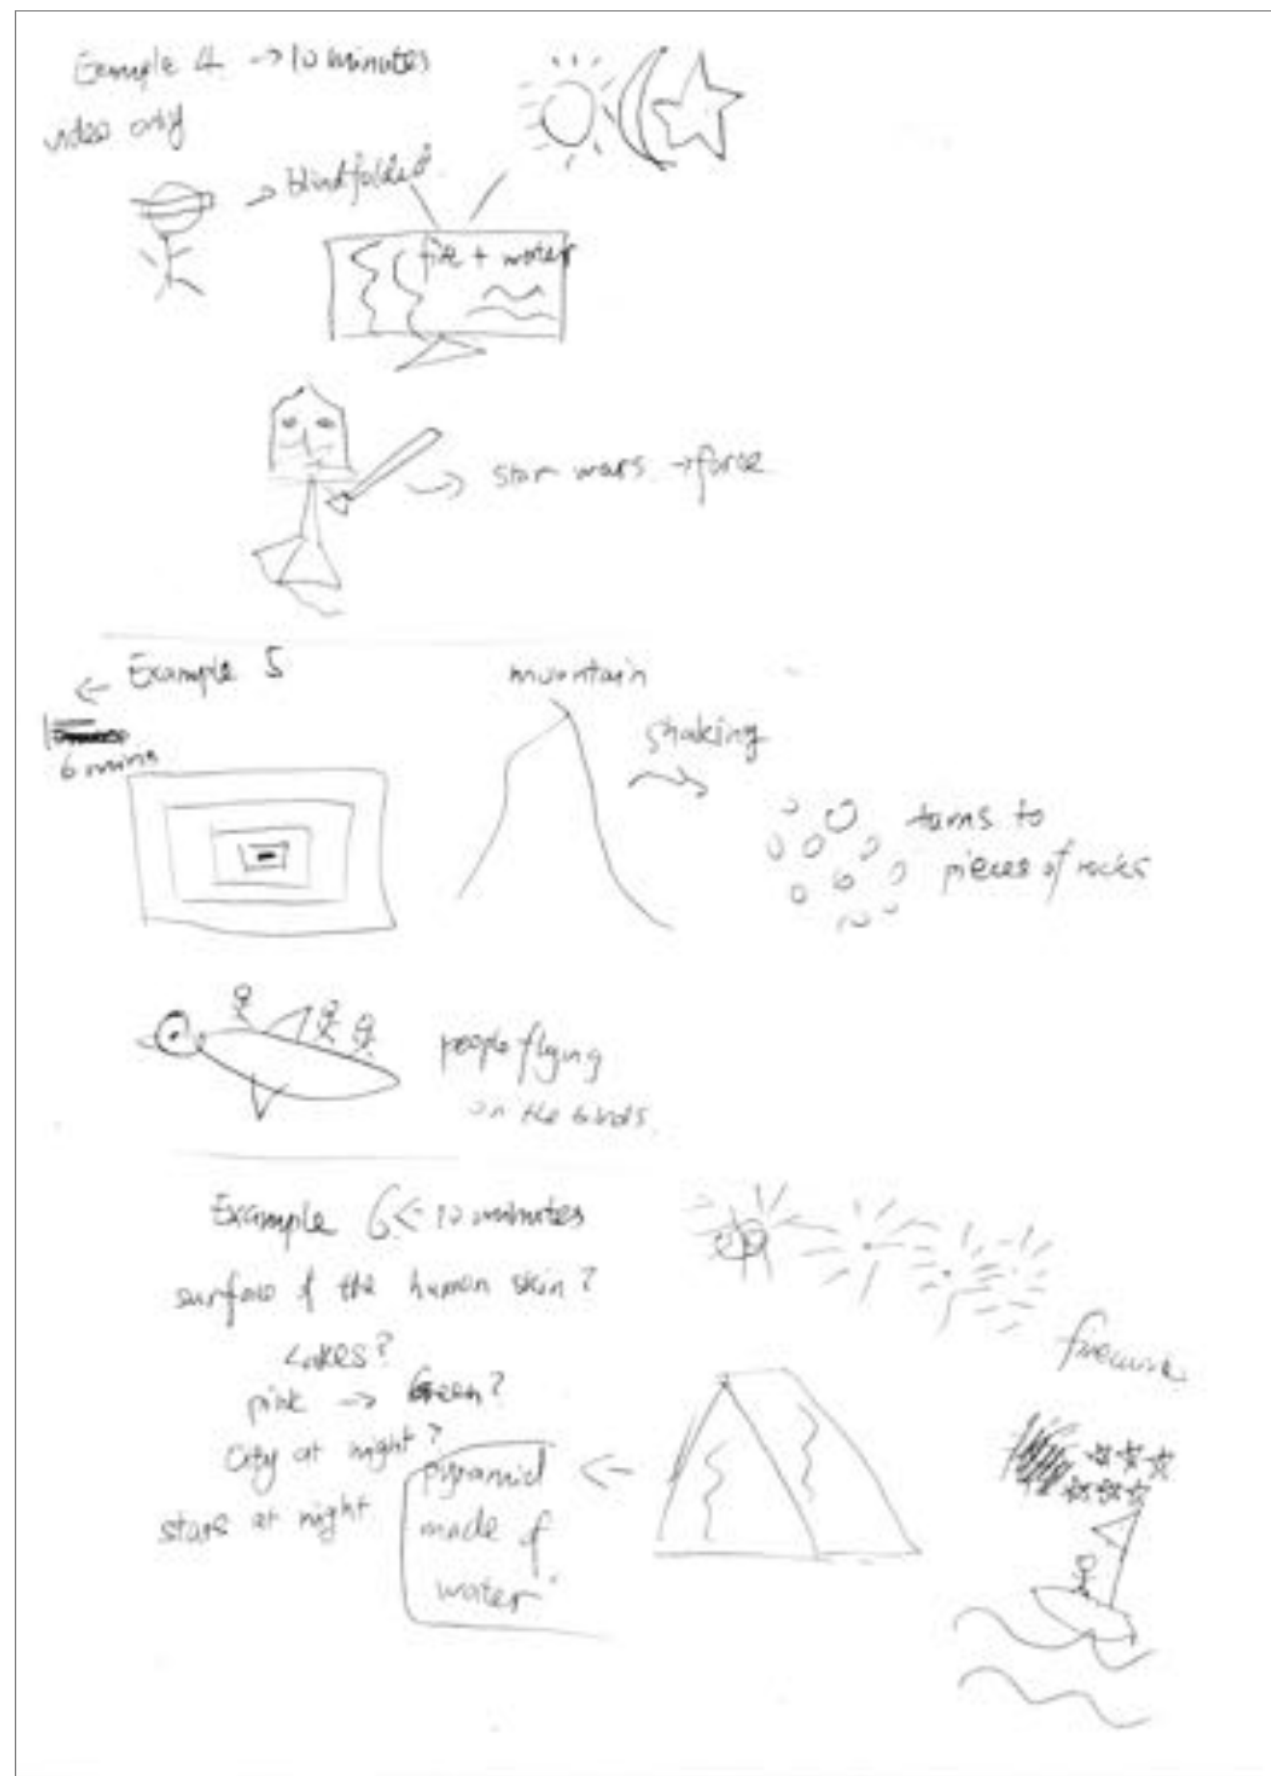 Example 4 → 10 minutes
video only
→ blindfolded
fire + water
→ star wars → force
← Example 5
6 mins
mountain
shaking
turns to
pieces of rocks
people flying
on the birds.
Example 6 ← 10 minutes
surface of the human skin?
Lakes?
pink → Green?
City at night?
stars at night
pyramid
made of
water